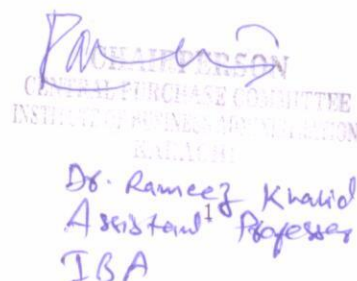 CHAIRPERSON
CENTRAL PURCHASE COMMITTEE
INSTITUTE OF BUSINESS ADMINISTRATION
KARACHI
Dr. Rameez Khalid
Assistant Professor
1
IBA